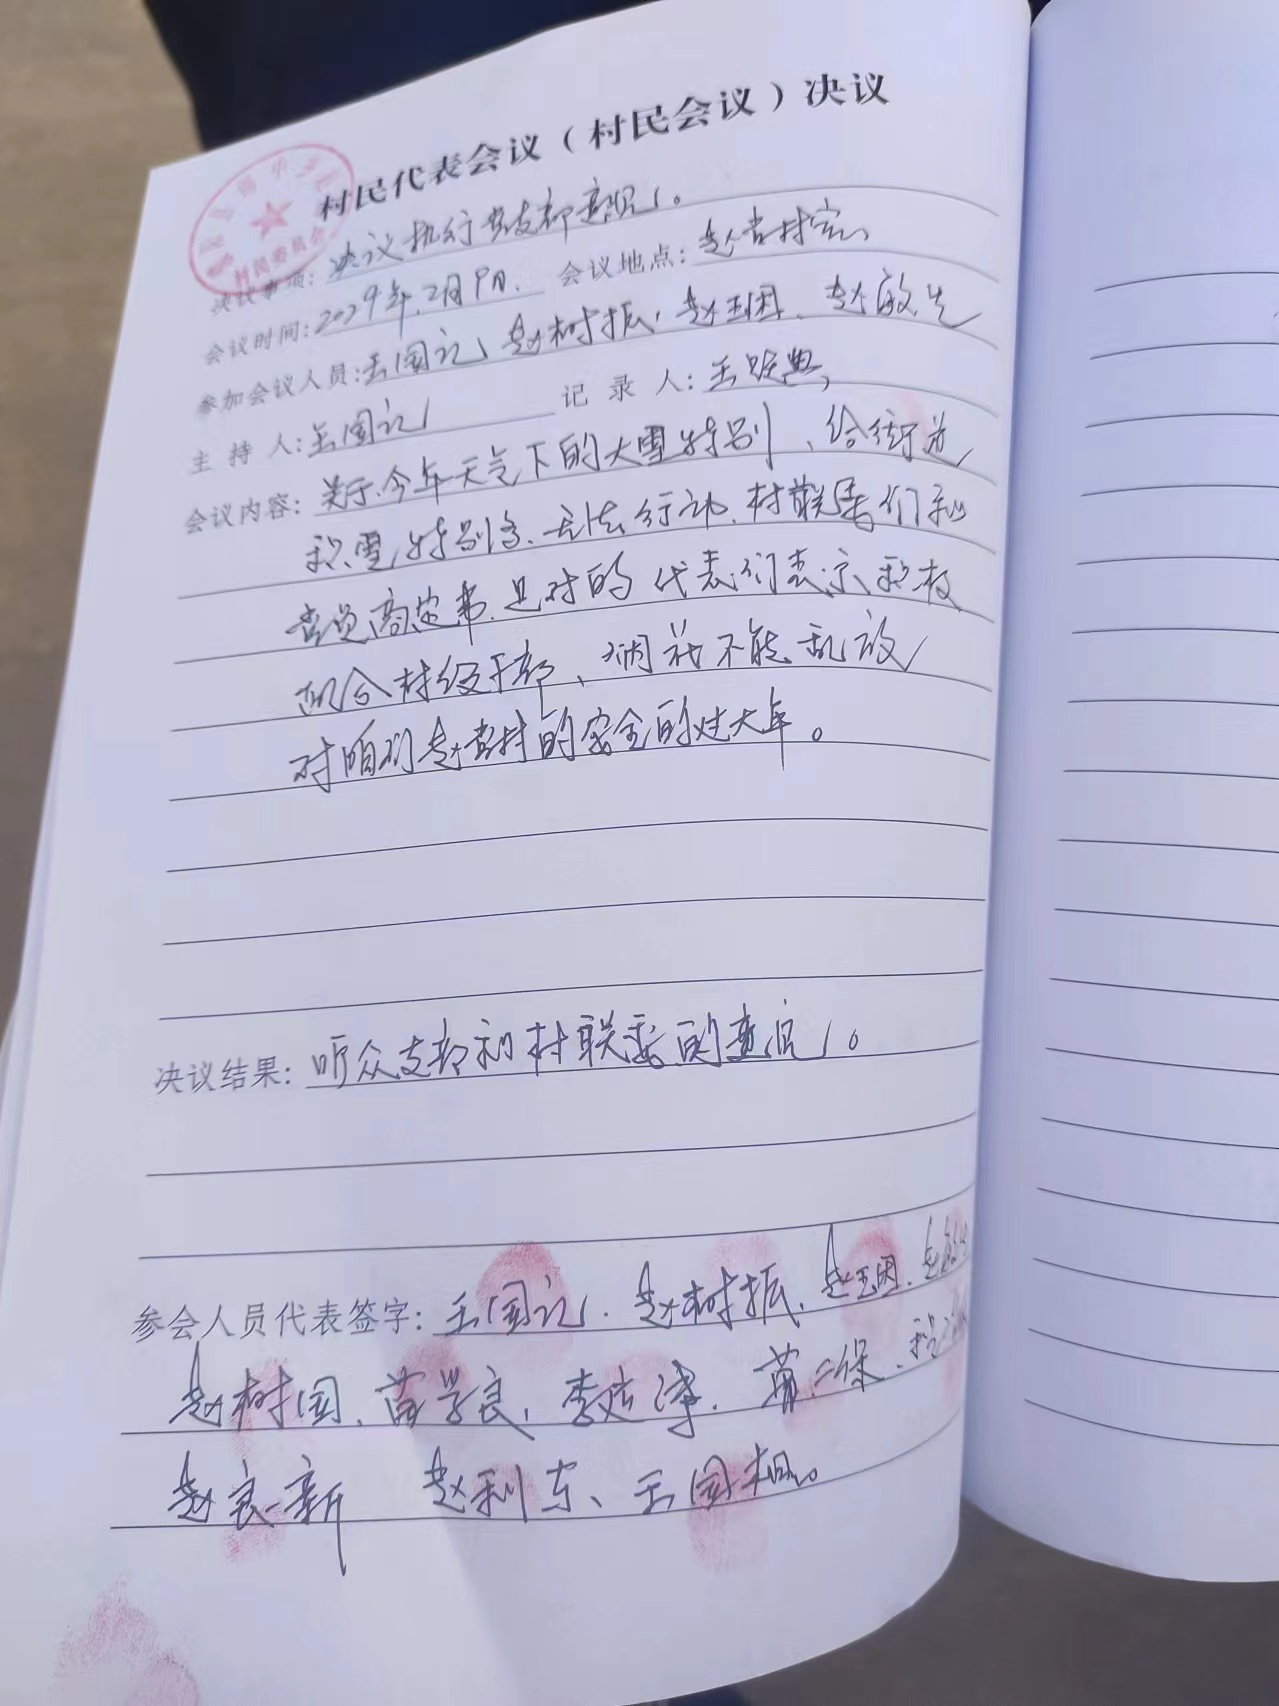 村民代表会议（村民会议）决议
村民委员会
决议事项：决议执行党支部意见。
会议时间：2024年.2月9日. 会议地点：赵党村室
参加会议人员：王国记、赵树振、赵玉困、赵敏生
主 持 人：王国记 记 录 人：王跃典
会议内容：关于今年天气下的大雪特别、给街道
积雪特别多.无法行动.村联委们和
党员商定弟.是对的 代表们表示积极
配合村级干部、烟花不能乱放
对咱们赵党村的安全的过大年。
决议结果：听众支部和村联委的意见。
参会人员代表签字：王国记.赵树振.赵玉困.赵敏
赵树国、苗学良、李志泽.苗二保.
赵良新 赵利东、王国相。